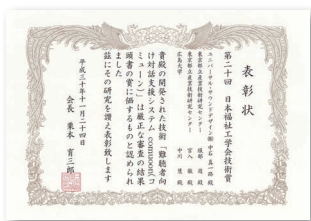 表彰状
第二十回 日本福祉工学会技術賞
ユニバーサル・サウンドデザイン㈱ 中石 真一路 殿
東京都立産業技術研究センター 服部 遊 殿
東京都立産業技術研究センター 宮入 徹 殿
広島大学 中川 慧 殿
貴殿の開発された技術「難聴者向
け対話支援システム comuoon(コ
ミューン)」は厳正な審査の結果
頭書の賞に価するものと認められ
ました
茲にその研究を讃え表彰致します
平成三十年十一月二十四日
会長 栗本 育三郎